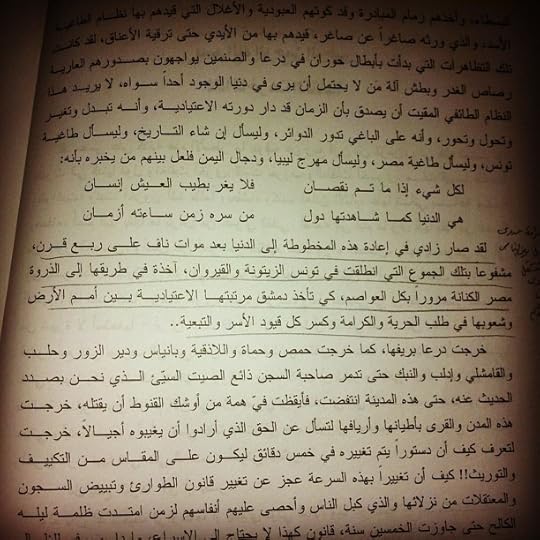 البسطاء، وأخذهم زمام المبادرة وقد كوتهم العبودية والأغلال التي قيدهم بها نظام الطاغية
الأسد، والذي ورثه صاغراً عن صاغر، قيدهم بها من الأيدي حتى ترقية الأعناق، لقد كانت
تلك التظاهرات التي بدأت بأبطال حوران في درعا والصنمين يواجهون بصدورهم العارية
رصاص الغدر وبطش آلة من لا يحتمل أن يرى في دنيا الوجود أحداً سواه، لا يريد هذا
النظام الطائفي المقيت أن يصدق بأن الزمان قد دار دورته الاعتيادية، وأنه تبدل وتغير
وتحول وتحور، وأنه على الباغي تدور الدوائر، وليسأل إن شاء التاريخ، وليسأل طاغية
تونس، وليسأل طاغية مصر، وليسأل مهرج ليبيا، ودجال اليمن فلعل بينهم من يخبره بأنه:
لكل شيء إذا ما تم نقصان فلا يغر بطيب العيش إنسان
هي الدنيا كما شاهدتها دول من سره زمن ساءته أزمان
لقد صار زادي في إعادة هذه المخطوطة إلى الدنيا بعد موات ناف على ربع قرن،
مشفوعا بتلك الجموع التي انطلقت في تونس الزيتونة والقيروان، آخذة في طريقها إلى الذروة
مصر الكنانة مروراً بكل العواصم، كي تأخذ دمشق مرتبتها الاعتيادية بين أمم الأرض
وشعوبها في طلب الحرية والكرامة وكسر كل قيود الأسر والتبعية..
خرجت درعا بريفها، كما خرجت حمص وحماة واللاذقية وبانياس ودير الزور وحلب
والقامشلي وإدلب والنبك حتى تدمر صاحبة السجن ذائع الصيت السيّئ الذي نحن بصدد
الحديث عنه، حتى هذه المدينة انتفضت، فأيقظت فيّ همة من أوشك القنوط أن يقتله، خرجت
هذه المدن والقرى بأطيانها وأريافها لتسأل عن الحق الذي أرادوا أن يغيبوه أجيالاً، خرجت
لتعرف كيف أن دستوراً يتم تغييره في خمس دقائق ليكون على المقاس من التكييف
والتوريث!! كيف أن تغييراً بهذه السرعة عجز عن تغيير قانون الطوارئ وتبييض السجون
والمعتقلات من نزلائها والذي كبل الناس وأحصى عليهم أنفاسهم لزمن امتدت ظلمة ليله
الكالح حتى جاوزت الخمسين سنة، قانون كهذا لا يحتاج إلى